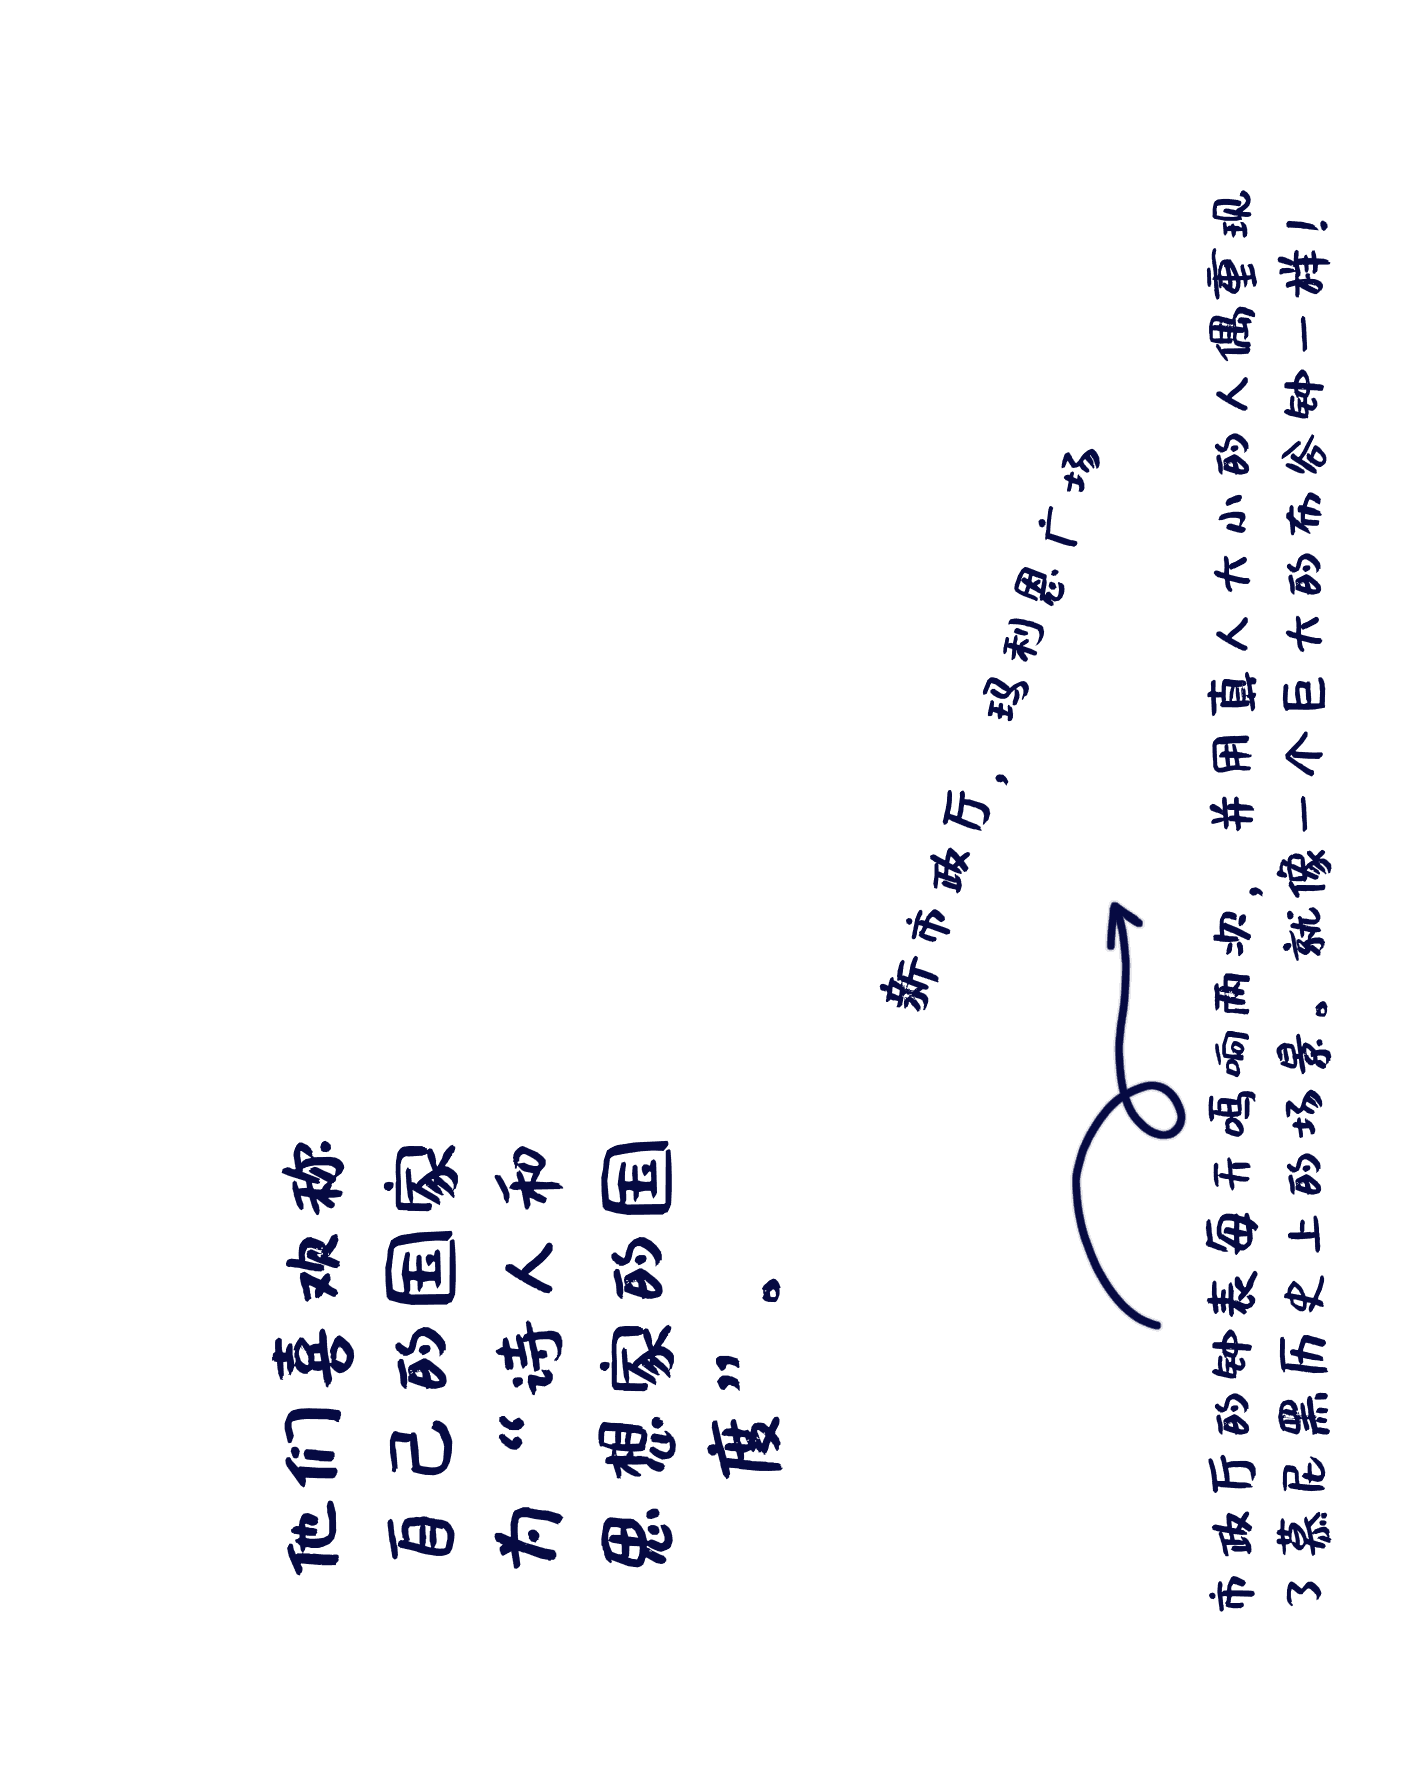 他们喜欢称
自己的国家
为“诗人和
思想家的国
度”。
新市政厅，玛利恩广场
市政厅的钟表每天鸣响两次，并用真人大小的人偶重现
了慕尼黑历史上的场景。就像一个巨大的布谷钟一样！